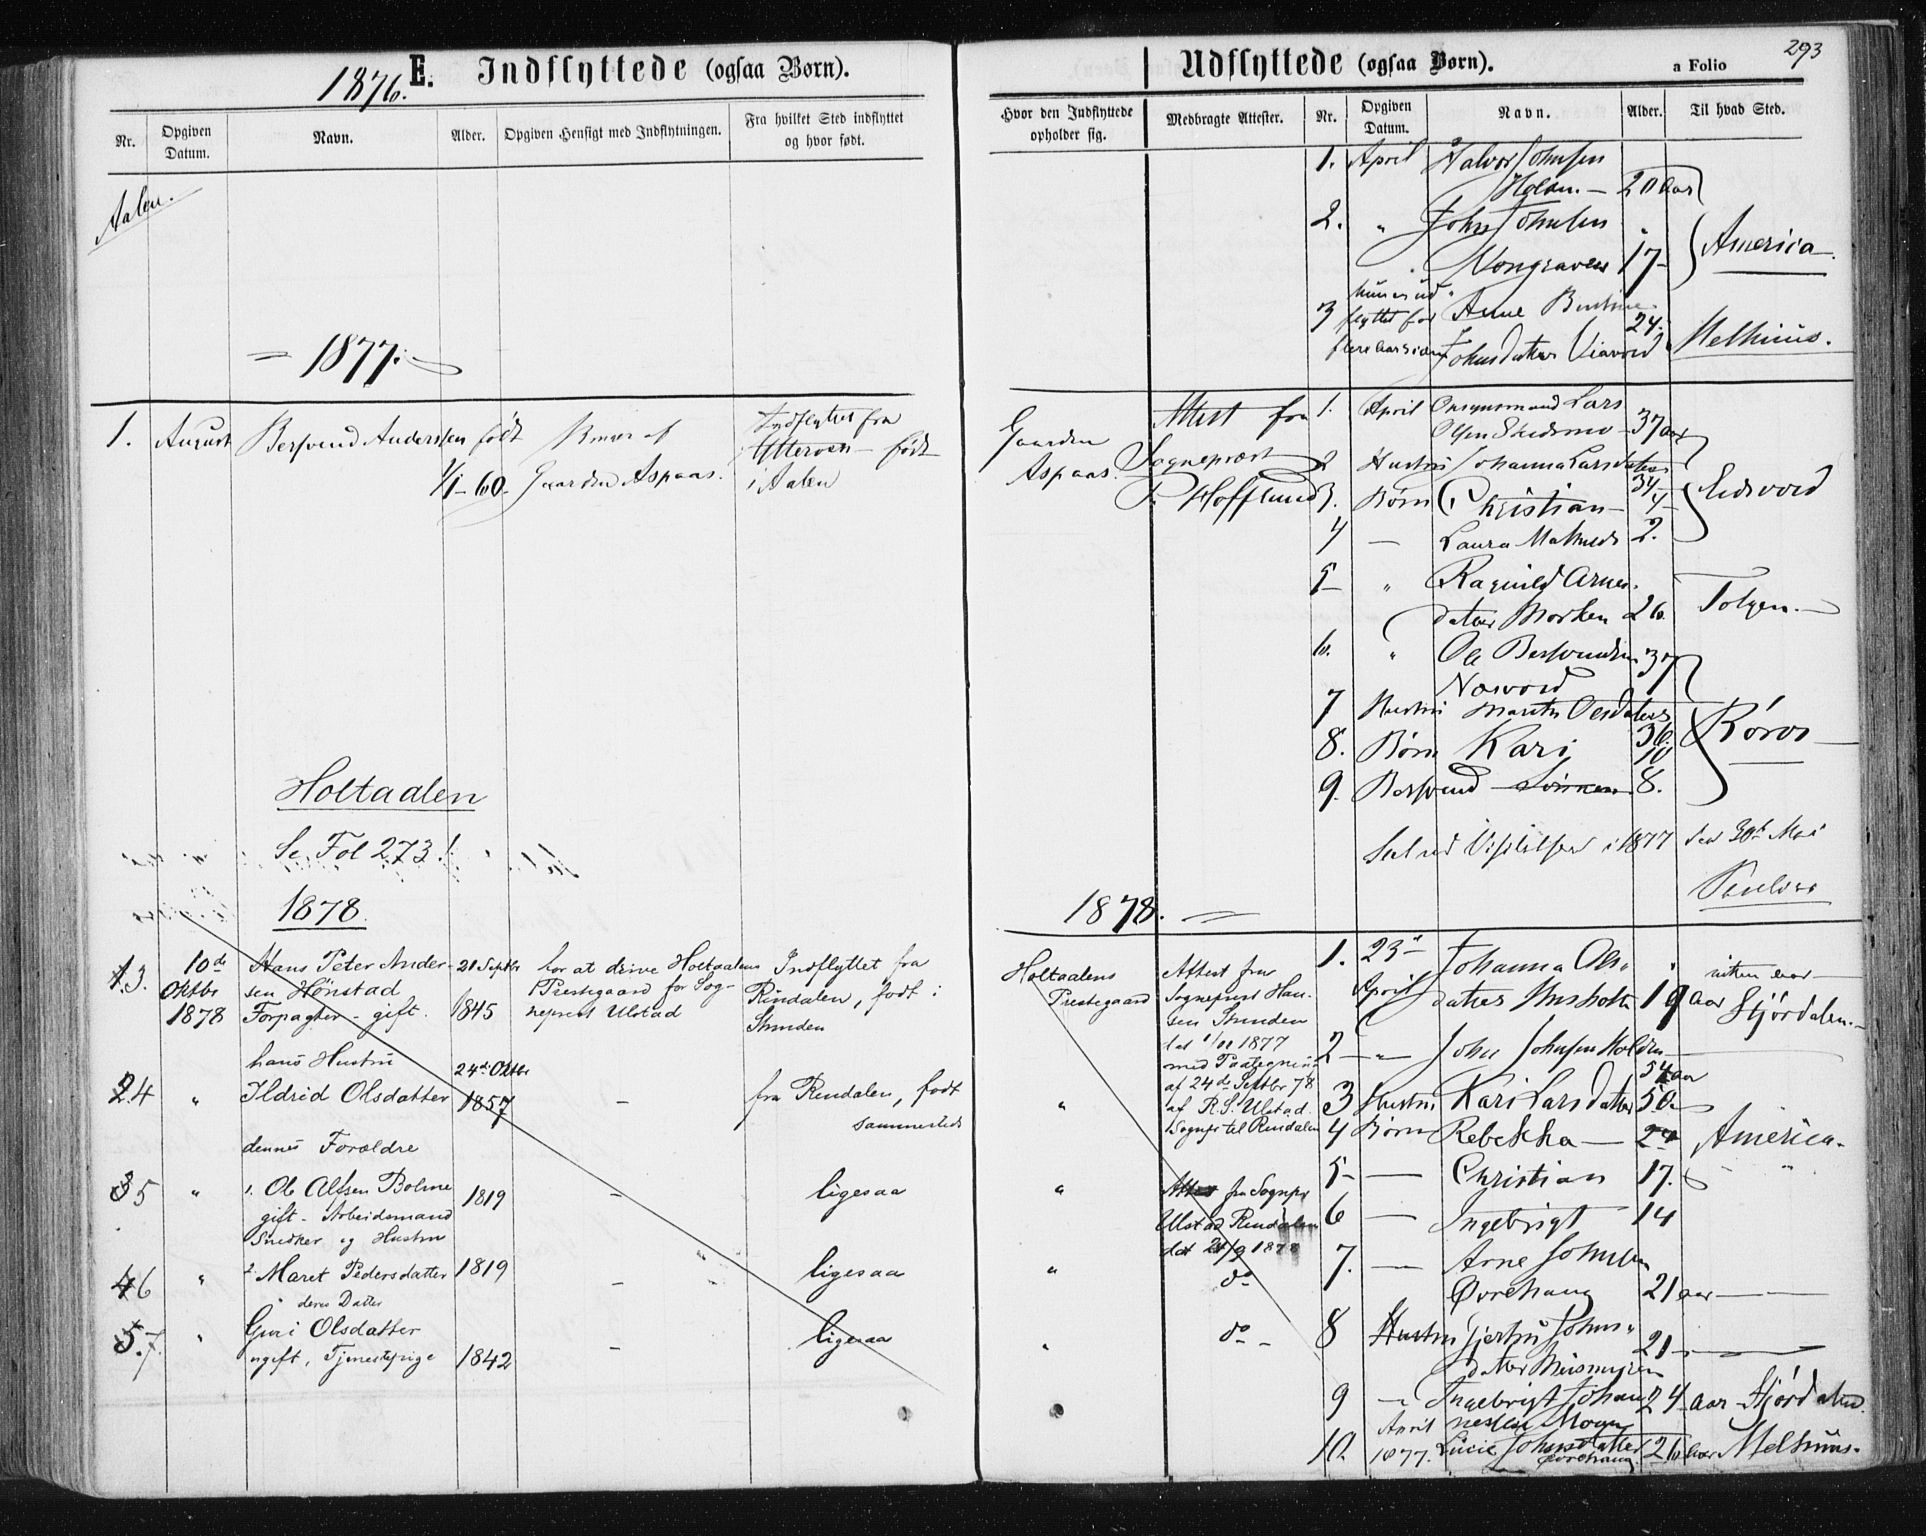 1876. E. Indflyttede (ogsaa Børn).
Nr. Opgiven Datum. Navn. Alder. Opgiven Hensigt med Indflytningen. Fra hvilket Sted indflyttet og hvor født.
Aalen.
— 1877. —
1. August Bersvend Andersen født Bruger af Indflyttet fra
1/1-60. Gaarden Aspaas. Ytterøen - født
i Aalen
Holtaalen
Se Fol 273!
1878.
13. 10de Hans Peter Ander- 21 Septbr for at drive Holtaalens Indflyttet fra
Oktbr sen Hønstad Prestegaard for Sog- Rindalen, født i
1878 Forpagter - gift. 1845 neprest Ulstad Skunden
hans Hustru 24de Oktbr
24 " Ildrid Olsdatter 1857 – fra Rindalen, født
sammesteds
dennes Forældre
35 " 1. Ole Alfsen Bolme 1819 – ligesaa
gift - Arbeidsmand
Snedker og Hustru
46 " 2. Maret Pedersdatter 1819 – ligesaa
deres Datter
5.7. " Guri Olsdatter ligesaa
ugift, Tjenestepige 1842 –
Udflyttede (ogsaa Børn). a Folio 293
Hvor den Indflyttede opholder sig. Medbragte Attester. Nr. Opgiven Datum. Navn. Alder. Til hvad Sted.
1. April Halvor Johnsen
Holden. — 20 aar
2. " John Johnsen
Kongraven 17- America.
hun er ud-
3 flyttet for Anne 24.
flere aar siden Johnsdatter Melhuus.
Gaarden Attest fra 1. April Lars
Aspaas. Sogneprest Olsen 37 aar
P. Hofflund 2 Hustru Johanna Larsdatter
34-
3. Børn Christian — 4- Eidsvold
4 — Laura Mathilde 2.
5- " Ragnild Arnes-
datter Morken 26. Tolgen. —
6. " Ole Bersvendsen 37
Næsvold
7 Hustru Marith Olsdatter
36. Røros —
8. Børn Kari 10
9. Bersvend 8.
Seet ved Visitatsen i 1877 den 30te Mai
1878. —
Holtaalens Attest fra 1. 23de Johanna Ols- nitten aar —
Prestegaard Sogneprest Han- April datter 19 aar Stjørdalen. —
sen Skunden
dat 1/11 1877 2 — " — John Johnsen Holden
med Paategning 54 aar
af 24de Septbr 78
" af R.S. Ulstad. 3 Hustru Kari Larsdatter 50 —
Sognepr til Rindalen 4 Børn Rebekka — 24 America.
5- — Christian 17. "
" Attest fra Sognepr
Ulstad Rindalen 6 — Ingebrigt 14
dat 24/9 1878
7. — Arne Johnsen
" do Øvrehaug 21 aar — —
" do - 8 Hustru Johns-
datter 21 —
9 — Ingebrigt Johan- 24 aar Stjørdalen.
nesen Moen
April
10. 1877. Lucie Johnsdatter 26 aar Melhuus.
Øvrehaug